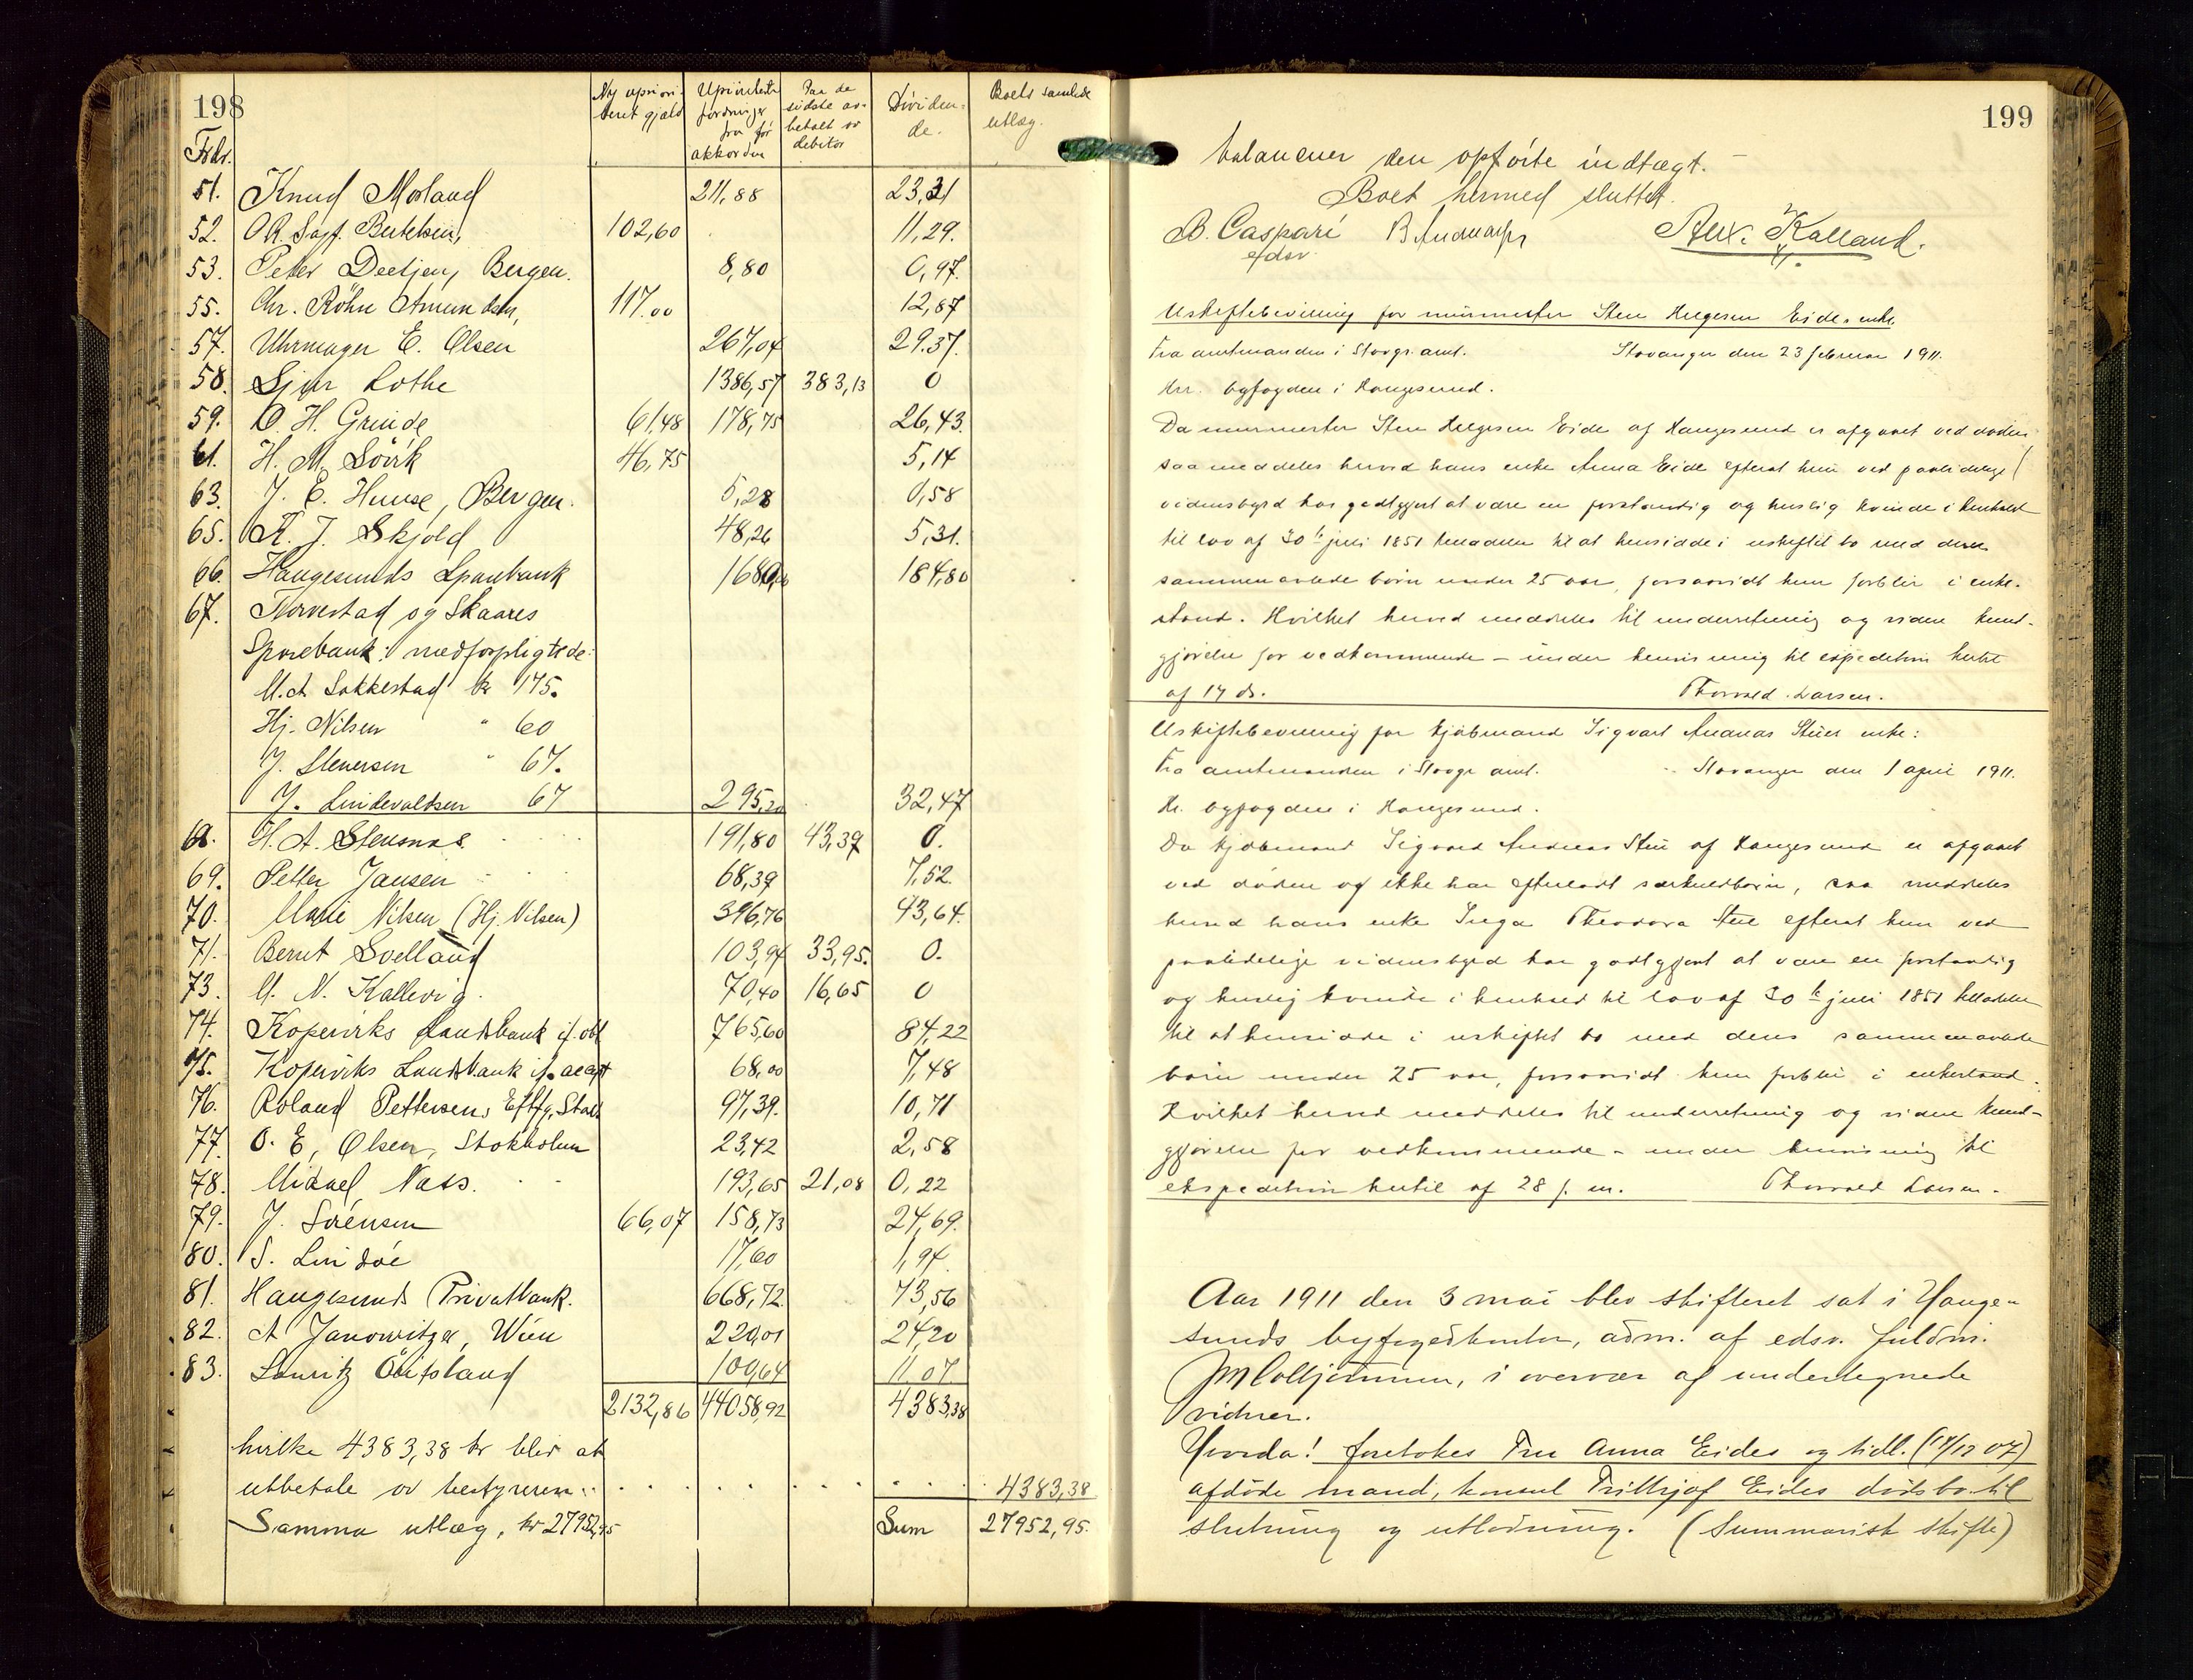 198
Fdr.
Ny upriori-
teret gjæld
Upriorterte
fordringer
fra før
akkorden
Paa de
sidste av-
betalt av
debitor
Dividen-
de.
Boets samlede
utlæg.
51. Knud Mosland 211,88 23,31
52. O.R. Sagf. Bertelsen, 102,60 11,29.
53. Peter Deetjen, Bergen. 8,80 0,97.
55. Chr. Röhn Amundsen, 117.00 12,87
57. Uhrmager E. Olsen 267,04 29.37.
58. Sjur Lothe 1386,57 383,13 0
59. O. H. Grinde 61,48 178,75 26,43.
61. H. M. Sövik 46,75 5,14
63. J. E. Huuse, Bergen. 5,28 0,58
65. K. J. Skjold 48,26 5,31.
66. Haugesunds Sparebank 1680,00 184,80
67. Torvestad og Skaares
Sparebank: medforpligtede:
M.A Sokkestad kr 175.
Hj. Nilsen " 60
J. Stenersen " 67.
J. Lindevaldsen 67 295,20 32,47
68. H. A. Stensnæs 191,80 43,39 0.
69. Petter Jansen 68,39 7,52.
70. Marie Nilsen (Hj. Nilsen) 396,76 43,64.
71. Bernt Sveland 103,94 33,95. 0.
73. M. N. Kallevig. 70,40 16,65 0
74. Koperviks Landsbank if. obl 765,60 84,22
75. Koperviks Landsbank if. accept 68,00 7,48
76. Roland Pettersens Eftfg, 97,39. 10,71
77. O. E, Olsen, Stokholm 23,42 2,58
78. Mikael Næss. 193,65 21,08 0,22
79. J. Sörensen 66,07 158,73 24,69.
80. S. Lindöe 17,60 1,94.
81. Haugesunds Privatbank. 668,72. 73,56
82. A Janowitzer, Wien 220,01 24,20
83. Lauritz Öitsland 100,64 11,07
2132,86 44058,92 4383,38
hvilke 4383,38 kr blir at
utbetale av bestyreren: 4383,38
Samme utlæg, kr 27952,95 Sum 27952,95.
199
balancerer den opførte indtægt.
Boet hermed sluttet.
B. Caspari B Andersen Alex. Kalland.
edsv.
Uskiftebevilling for murmester Sten Helgesen Eides enke.
Fra amtmanden i Stavgr. amt. Stavanger den 23 februar 1911.
Hr. byfogden i Haugesund.
Da murmester Sten Helgesen Eide af Haugesund er afgaaet ved døden
saa meddeles herved hans enke Anna Eide efterat hun ved paalidelige
vidnesbyrd har godtgjort at være en forstandig og huslig kvinde i henhold
til lov af 30te juli 1851 tilladelse til at hensidde i uskiftet bo med deres
sammenavlede børn under 25 aar, forsaavidt hun forblir i enke-
stand. Hvilket herved meddeles til underretning og videre kund-
gjørelse for vedkommende - under henvisning til expedition hertil
af 17 ds. Thorvald Larsen.
Uskiftebevilling for kjøbmand Sigvart Andreas Steies enke:
Fra amtmanden i Stavgr amt. Stavanger den 1 april 1911.
Hr. byfogden i Haugesund.
Da kjøbmand Sigvard Andreas Steie af Haugesund er afgaaet
ved døden og ikke har efterladt særkuldbørn, saa meddeles
herved hans enke Inga Theodora Steie efterat hun ved
paalidelige vidnesbyrd har godtgjort at være en forstandig
og huslig kvinde i henhold til lov af 30te juli 1851 tilladelse
til at hensidde i uskiftet bo med deres sammenavlede
børn under 25 aar, forsaavidt hun forblir i enkestand.
Hvilket herved meddeles til underretning og videre kund-
gjørelse for vedkommende - under henvisning til
ekspedition hertil af 28 f. m. Thorvald Larsen.
Aar 1911 den 3 mai blev skifteret sat i Hauge-
sunds byfogedkontor, adm. af edsv. fuldm.
i overvær af undertegnede
vidner.
Hvorda! foretokes Fru Anna Eides og tidl. (17/12 07)
afdøde mand, konsul Frithjof Eides dødsbo til
slutning og utlodning. (Summarisk skifte)